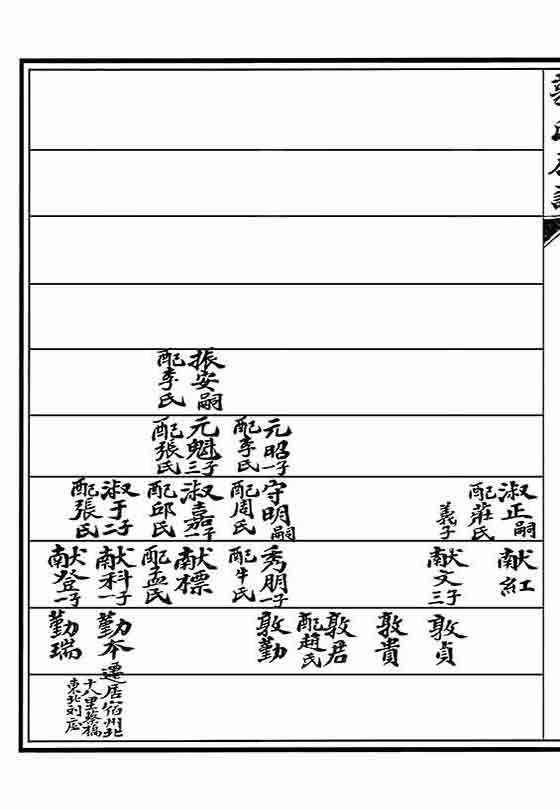 振安嗣
配李氏
元昭一子
配李氏
元魁三子
配張氏
淑正嗣
配莊氏
義子
守明嗣
配周氏
淑嘉一子
配邱氏
淑于二子
配張氏
献紅
献文三子
秀朋一子
配牛氏
献標
配孟氏
献科一子
献登一子
敦貞
敦貴
敦君
配趙氏
敦勤
勤本
勤瑞
遷居宿州北
十八里蔡橋
東北刘庄